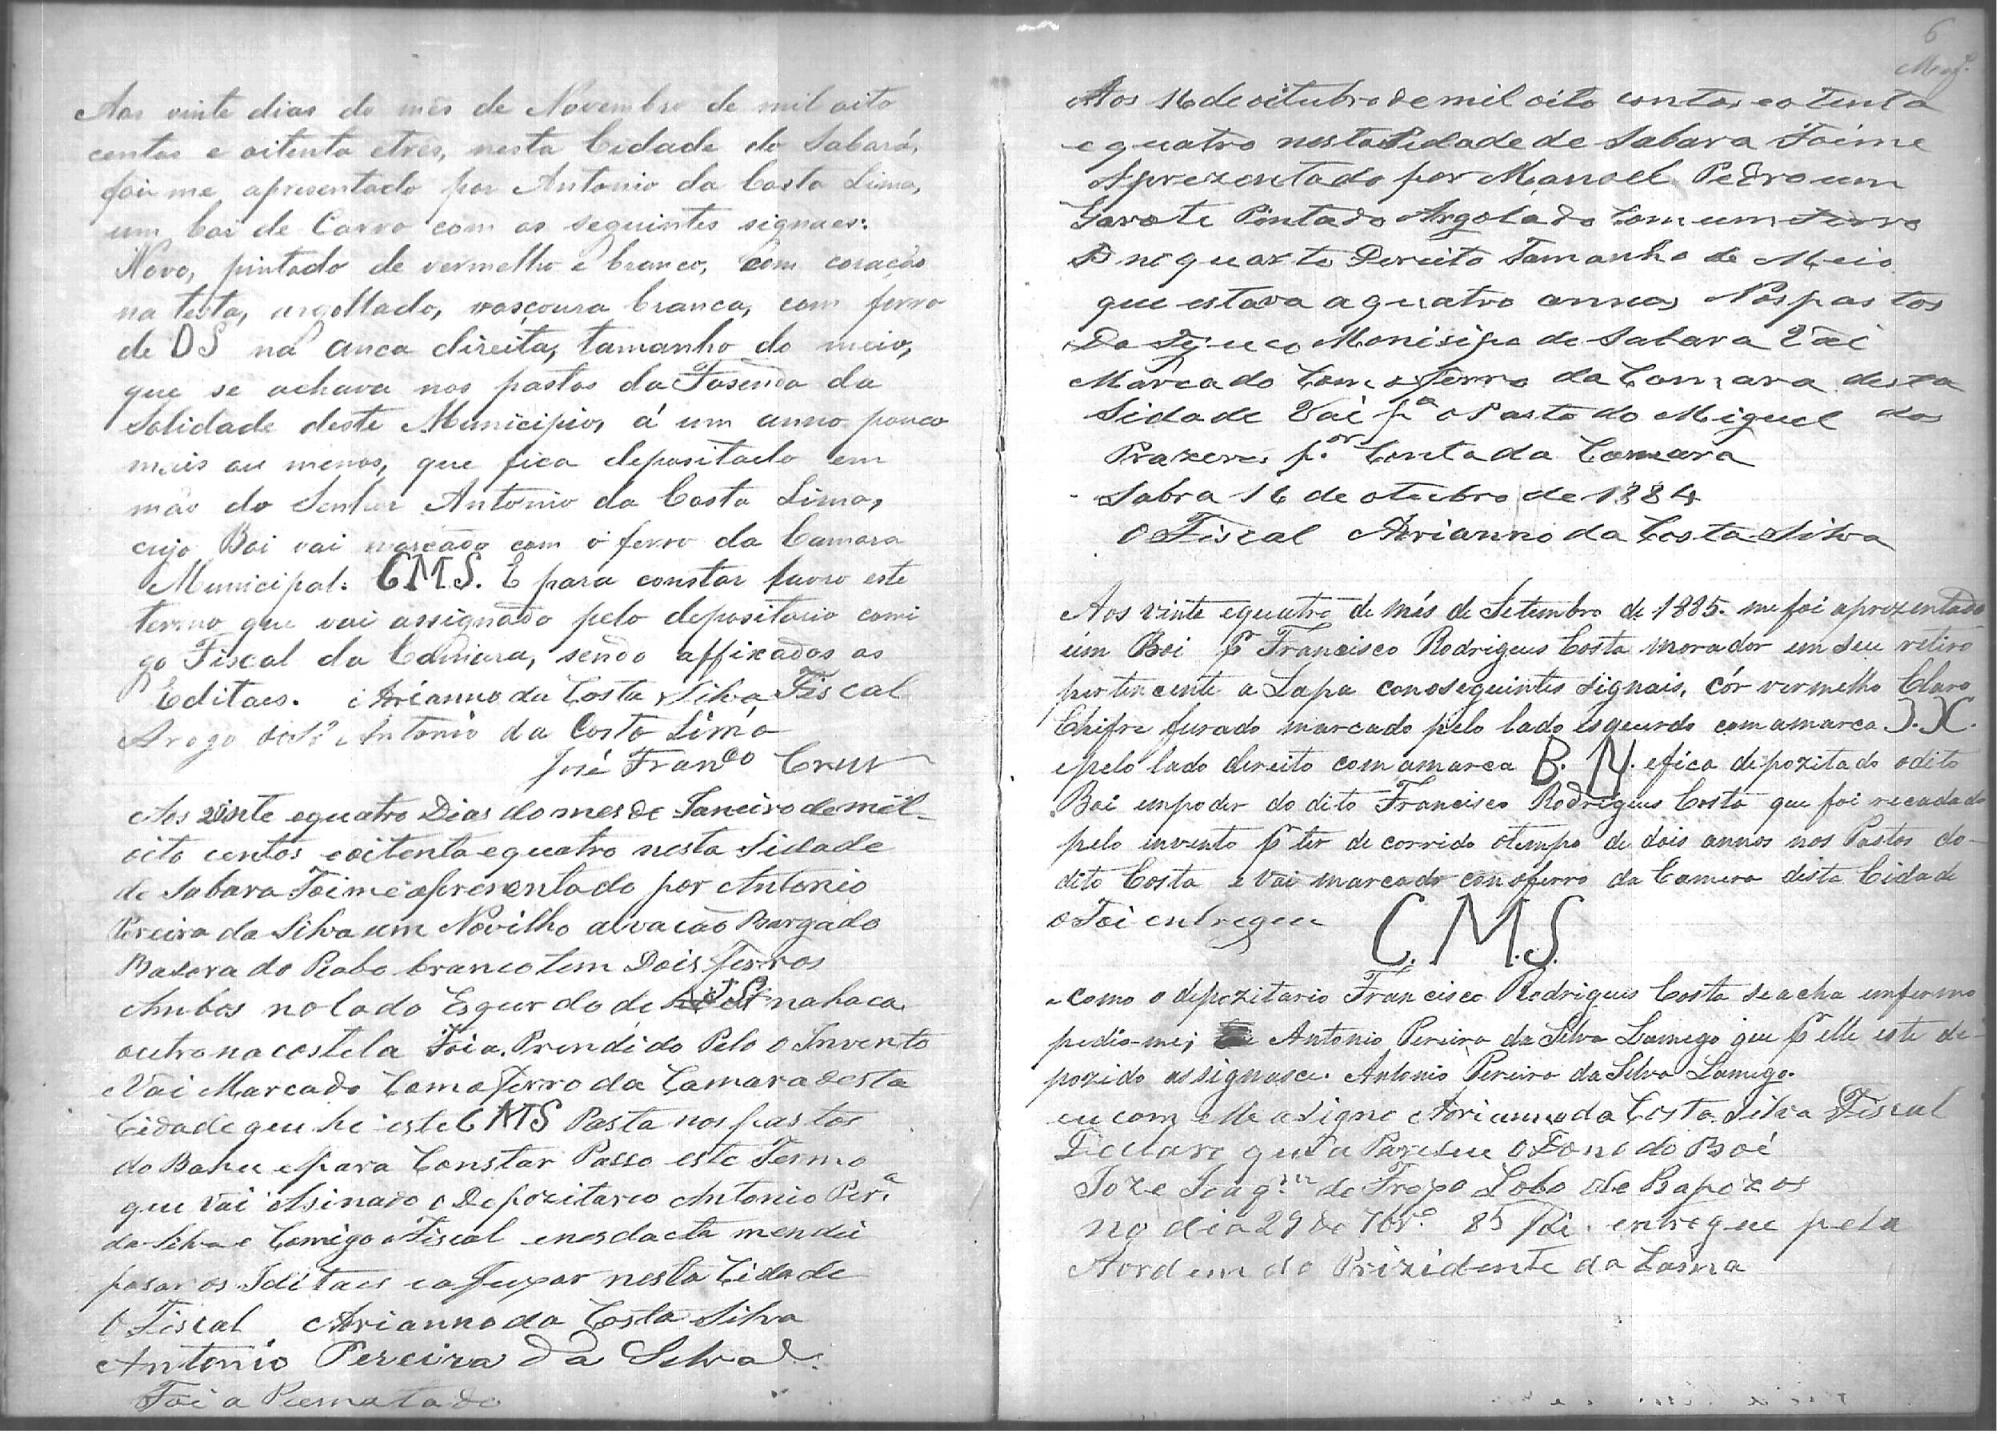 Aos vinte dias do mês de Novembro de mil oito
centos e oitenta e tres, nesta Cidade do Sabará,
foi me apresentado por Antonio da Costa Lima,
um boi de Carro com os seguintes signaes:
Novo, pintado de vermelho e branco, com coração
na testa, argollado, vasçoura branca, com ferro
de DS na anca direita, tamanho do meio,
que se achava nos pastos da Fasenda da
Solidade deste Municipio, á um anno pouco
mais ou menos, que fica depositado em
mão do Senhor Antonio da Costa Lima,
cujo Boi vai marcado com o ferro da Camara
Municipal: CMS. E para constar lavro este
termo que vai assignado pelo depositario comi
go Fiscal da Camara, sendo affixados os
Editaes. Arianno da Costa e Silva Fiscal
Arogo do Sr Antonio da Costa Lima
José Franco
Aos vinte equatro Dias do mes de Janeiro de mil
oito centos e oitenta e quatro nesta Sidade
de Sabara Foi me apresentado por Antonio
Pereira da Silva um Novilho alvacão Bargado
Basora do Rabo branco tem Dois ferros
Ambos no lado Esqurdo de na haca
outro na costela Foi a Prendido Pelo o Invento
Vai Marcado Como ferro da Camara desta
Cidade que he este CMS Pasta nos pastos
do Bahu e para Constar Passo este Termo
que Vai Asinado o Depozitareo Antonio Per.a
da Silva e Comigo o Fiscal e nesdacta mendei
pasar os Iditaes e afuxar nesta Cidade
O Fiscal Arianno da Costa Silva
Antonio Pereira da Silva
Foi a Rematado
6
Aos 16 de oitubro de mil oito centos e oitenta
e quatro nesta Sidade de Sabara Foi me
Aprezentado por Manoel Pedro um
Garote Pintado Argolado Com um Ferro
D no quarto Dereito Tamanho de Meio
que estava a quatro annos Nos pastos
Do Municipe de Sabara Vai
Marcado Com o ferro da Camara desta
Sidade Vai p.a o Pasto do Miguel dos
Prazeres p.or Conta da Camara
Sabra 16 de otubro de 1884
O Fiscal Arianno da Costa Silva
Aos vinte equatro de mês de Setembro de 1885. me foi aprezentado
um Boi pr Francisco Rodrigues Costa morador em seu retiro
pertencente a Lapa com os seguintes signais, côr vermelho Claro
Chifre furado marcado pelo lado esquerdo com a marca J.X.
e pelo lado direito com a marca B. N. e fica depozitado o dito
Boi em poder do dito Francisco Rodrigues Costa que foi recadado
pelo invento pr ter de corrido o tempo de dois annos nos Pastos do
dito Costa e Vai marcado com o ferro da Camera desta Cidade
o Foi entregue C.M.S.
e como o depozitario Francisco Rodrigues Costa se acha emfermo
pedio-me, Antonio Pereira da Silva Lamego que pr elle este de-
pozido assignasce. Antonio Pereira da Silva Lamego.
eu com elle a Signo Arianno da Costa Silva Fiscal
Declaro qui a Pareseu o Dono do Boi
Joze Joaq.m de Lobo de Rapozos
no dia 29 de 7br.o 85 Foi entregue pela
Aordem do Prizidente da Camra